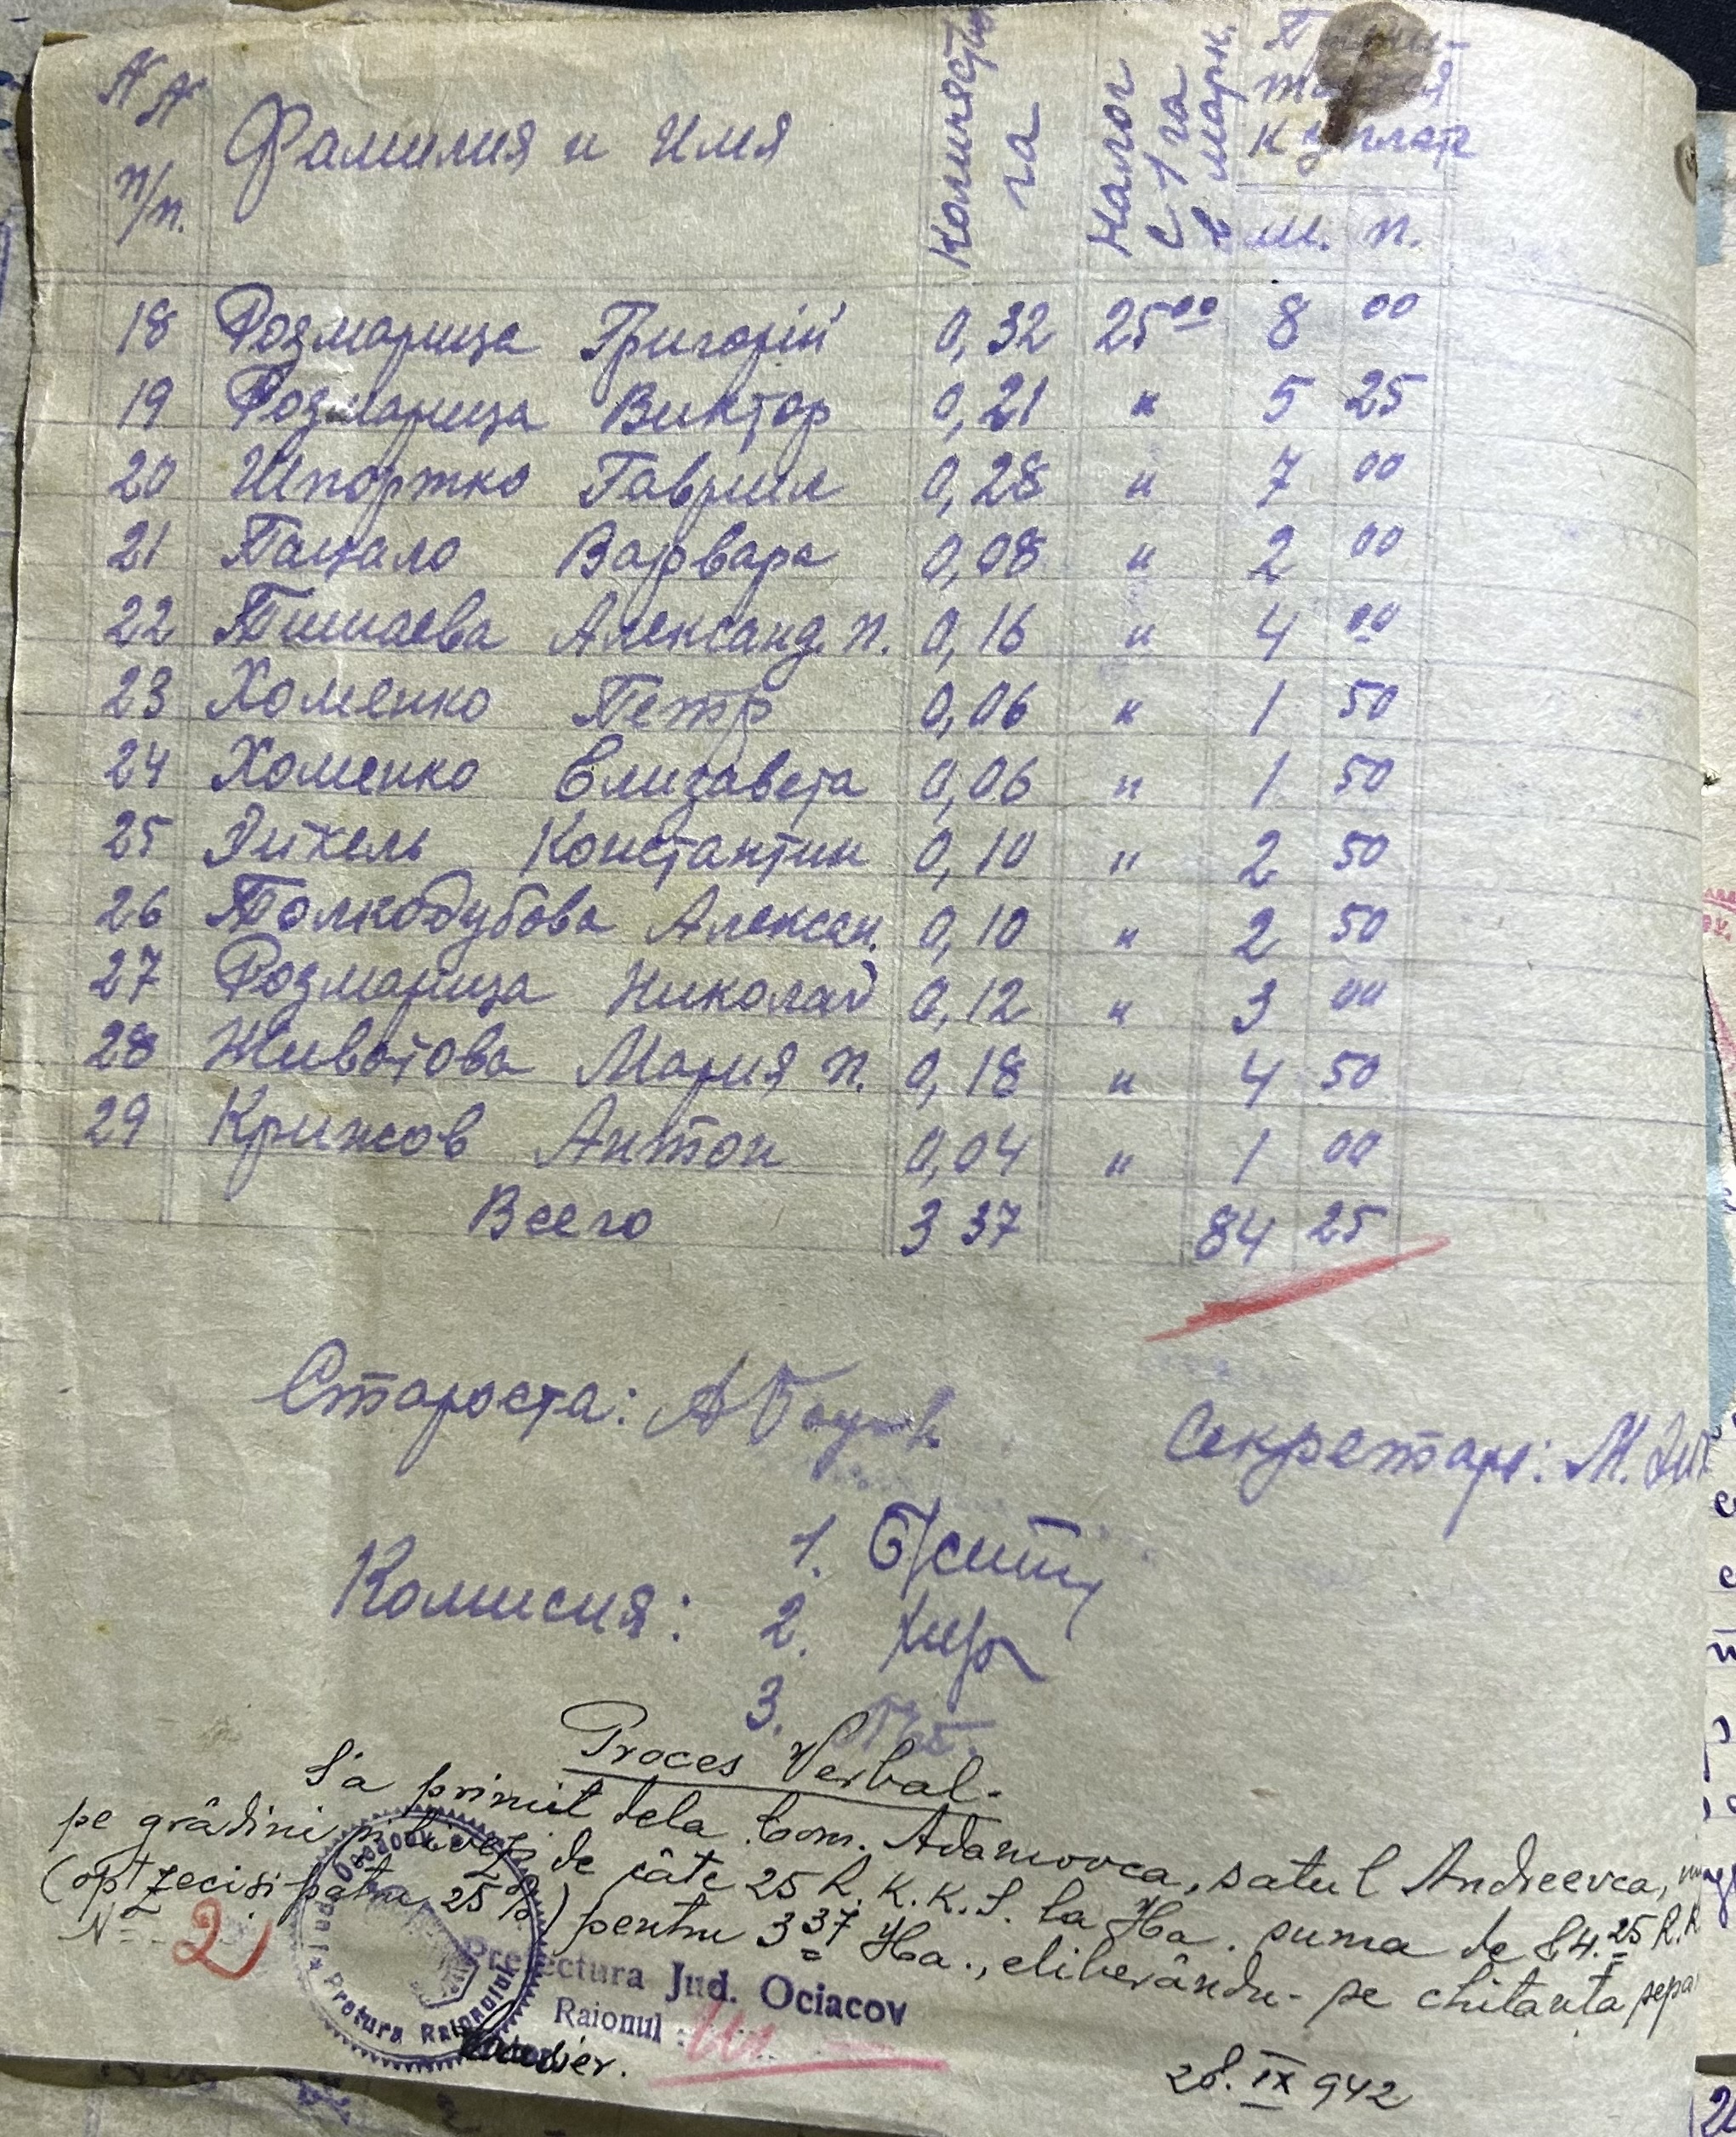 №№ п/п. Фамилия и Имя Количество га Налог с 1 га в марк. к уплате
м. п.
18 Розмарица Григорій 0,32 25 00 8 00
19 Розмарица Виктор 0,21 " 5 25
20 Шпортко Гаврил 0,28 " 7 00
21 Пацало Варвара 0,08 " 2 00
22 Тимаева Александ. п. 0,16 " 4 00
23 Хоменко Петр 0,06 " 1 50
24 Хоменко Елизавета 0,06 " 1 50
25 Константин 0,10 " 2 50
26 Толкодубова Алексан. 0,10 " 2 50
27 Розмарица Николай 0,12 " 3 00
28 Животова Мария п. 0,18 " 4 50
29 Крижов Антон 0,04 " 1 00
Всего 3 37 84 25
Староста:
Секретарь: М.
Комисия: 1.
2.
3.
Proces Verbal.
S'a primit dela Com. Adamovca, satul Andreevca,
pe grădini și livezi de câte 25 R.K.K.S. la Ha. suma de 84.25 R.K
(optzecisipatru 25%) pentru 3 37 Ha., eliberându-se chitanta sepa
N= 2
Pretura Raionului
Prefectura Jud. Ociacov
Raionul :
28. IX 942